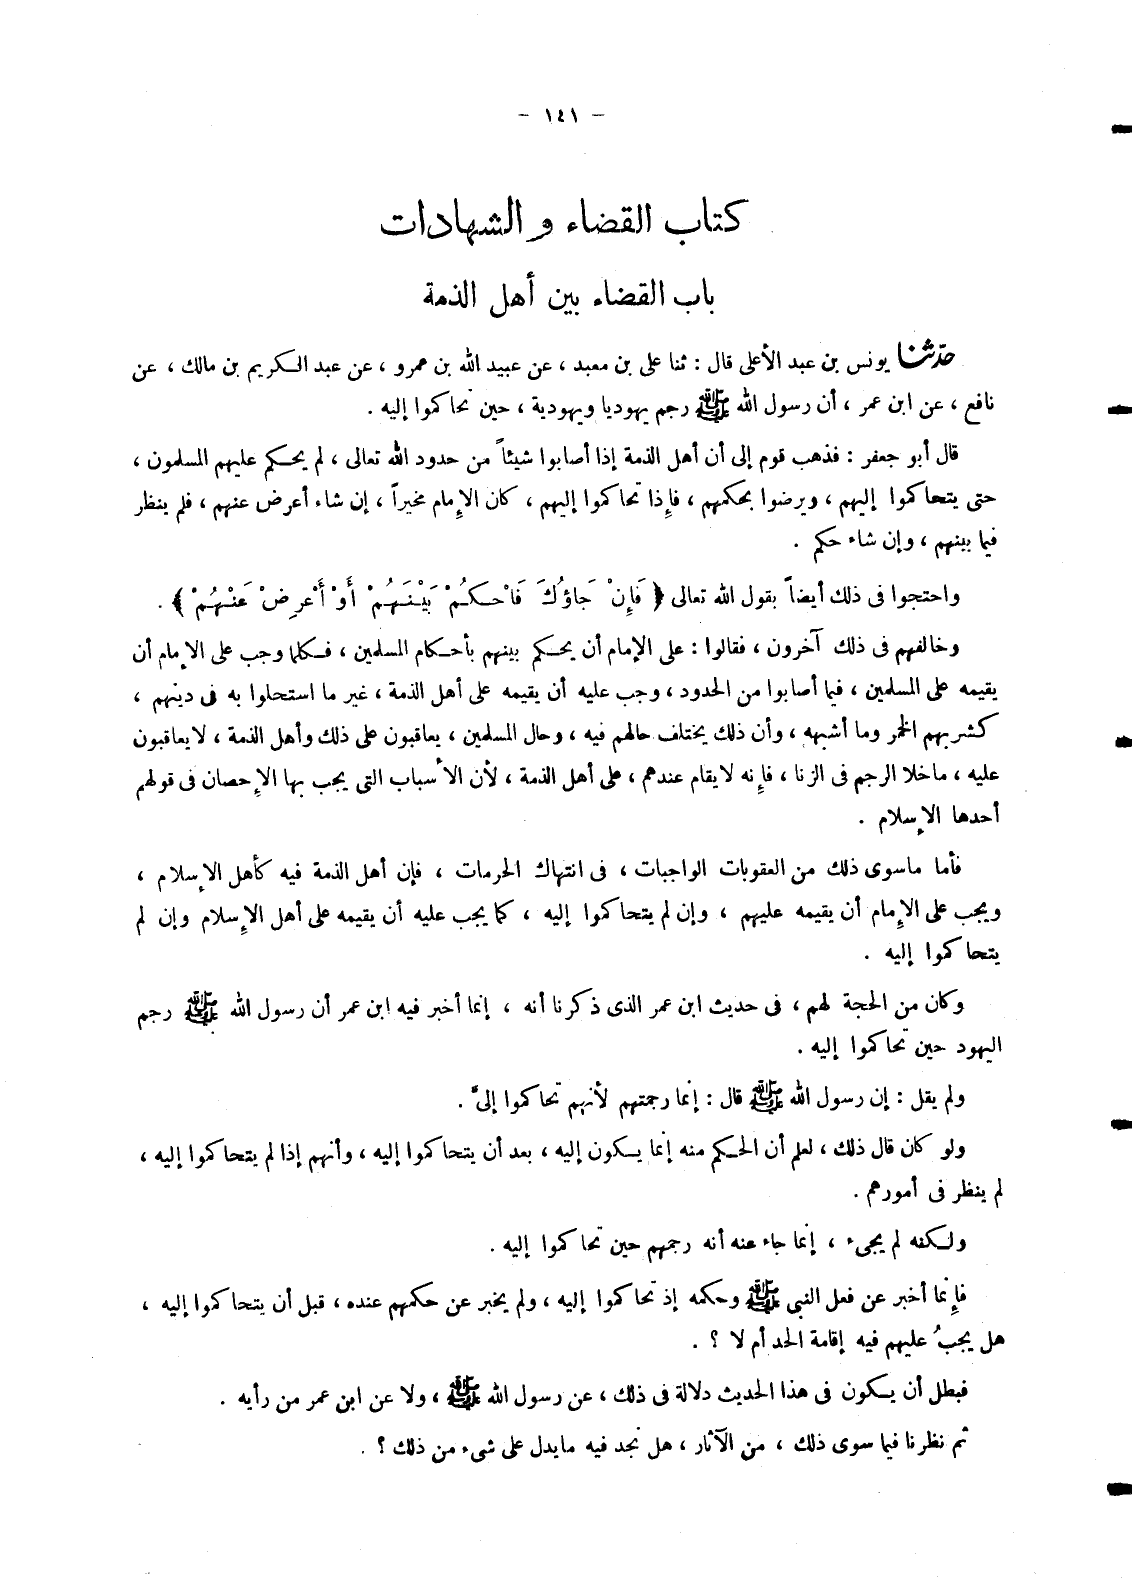 - ١٤١ -
كتاب القضاء والشهادات
باب القضاء بين أهل الذمة
حدّثنا يونس بن عبد الأعلى قال : ثنا على بن معبد ، عن عبيد الله بن عمرو ، عن عبد الكريم بن مالك ، عن
نافع ، عن ابن عمر ، أن رسول الله ﷺ رجم يهوديا ويهودية ، حين تحاكموا إليه .
قال أبو جعفر : فذهب قوم إلى أن أهل الذمة إذا أصابوا شيئاً من حدود الله تعالى ، لم يحكم عليهم المسلمون ،
حتى يتحاكموا إليهم ، ويرضوا بحكمهم ، فإذا تحاكموا إليهم ، كان الإمام مخيراً ، إن شاء أعرض عنهم ، فلم ينظر
فيما بينهم ، وإن شاء حكم .
واحتجوا فى ذلك أيضاً بقول الله تعالى ﴿ فَإِنْ جَاؤُكَ فَاحْكُمْ بَيْنَهُمْ أَوْ أَعْرِضْ عَنْهُمْ ﴾ .
وخالفهم فى ذلك آخرون ، فقالوا : على الإمام أن يحكم بينهم بأحكام المسلمين ، فكلما وجب على الإمام أن
يقيمه على المسلمين ، فيما أصابوا من الحدود ، وجب عليه أن يقيمه على أهل الذمة ، غير ما استحلوا به فى دينهم ،
كشربهم الخمر وما أشبهه ، وأن ذلك يختلف حالهم فيه ، وحال المسلمين ، يعاقبون على ذلك وأهل الذمة ، لا يعاقبون
عليه ، ماخلا الرجم فى الزنا ، فإنه لا يقام عندهم ، على أهل الذمة ، لأن الأسباب التى يجب بها الإحصان فى قولهم
أحدها الإسلام .
فأما ماسوى ذلك من العقوبات الواجبات ، فى انتهاك الحرمات ، فإن أهل الذمة فيه كأهل الإسلام ،
ويجب على الإمام أن يقيمه عليهم ، وإن لم يتحاكموا إليه ، كما يجب عليه أن يقيمه على أهل الإسلام وإن لم
يتحاكموا إليه .
وكان من الحجة لهم ، فى حديث ابن عمر الذى ذكرنا أنه ، إنما أخبر فيه ابن عمر أن رسول الله ﷺ رجم
اليهود حين تحاكموا إليه .
ولم يقل : إن رسول الله ﷺ قال : إنما رجمتهم لأنهم تحاكموا إلىَّ .
ولو كان قال ذلك ، لعلم أن الحكم منه إنما يكون إليه ، بعد أن يتحاكموا إليه ، وأنهم إذا لم يتحاكموا إليه ،
لم ينظر فى أمورهم .
ولكنه لم يجىء ، إنما جاء عنه أنه رجمهم حين تحاكموا إليه .
فإنما أخبر عن فعل النبي ﷺ وحكمه إذ تحاكموا إليه ، ولم يخبر عن حكمهم عنده ، قبل أن يتحاكموا إليه ،
هل يجبُ عليهم فيه إقامة الحد أم لا ؟ .
فبطل أن يكون فى هذا الحديث دلالة فى ذلك ، عن رسول الله ﷺ ، ولا عن ابن عمر من رأيه .
ثم نظرنا فيما سوى ذلك ، من الآثار ، هل نجد فيه مايدل على شىء من ذلك ؟ .